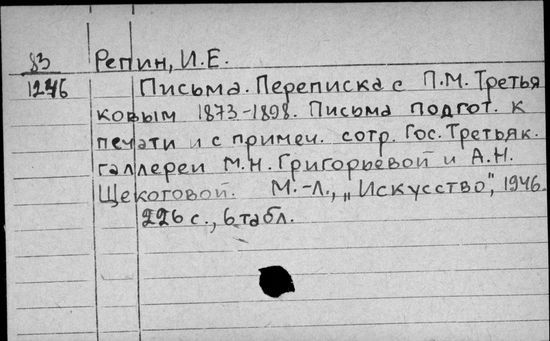 83 Репин, И.Е.
1246 Письма. Переписка с П.М. Третья
ковым 1873-1898. Письма подгот. к
печати и с примеч. сотр. Гос. Третьяк.
галлереи М.Н. Григорьевой и А.Н.
Щекотовой. М.-Л., „Искусство", 1946.
226 с., 6 табл.